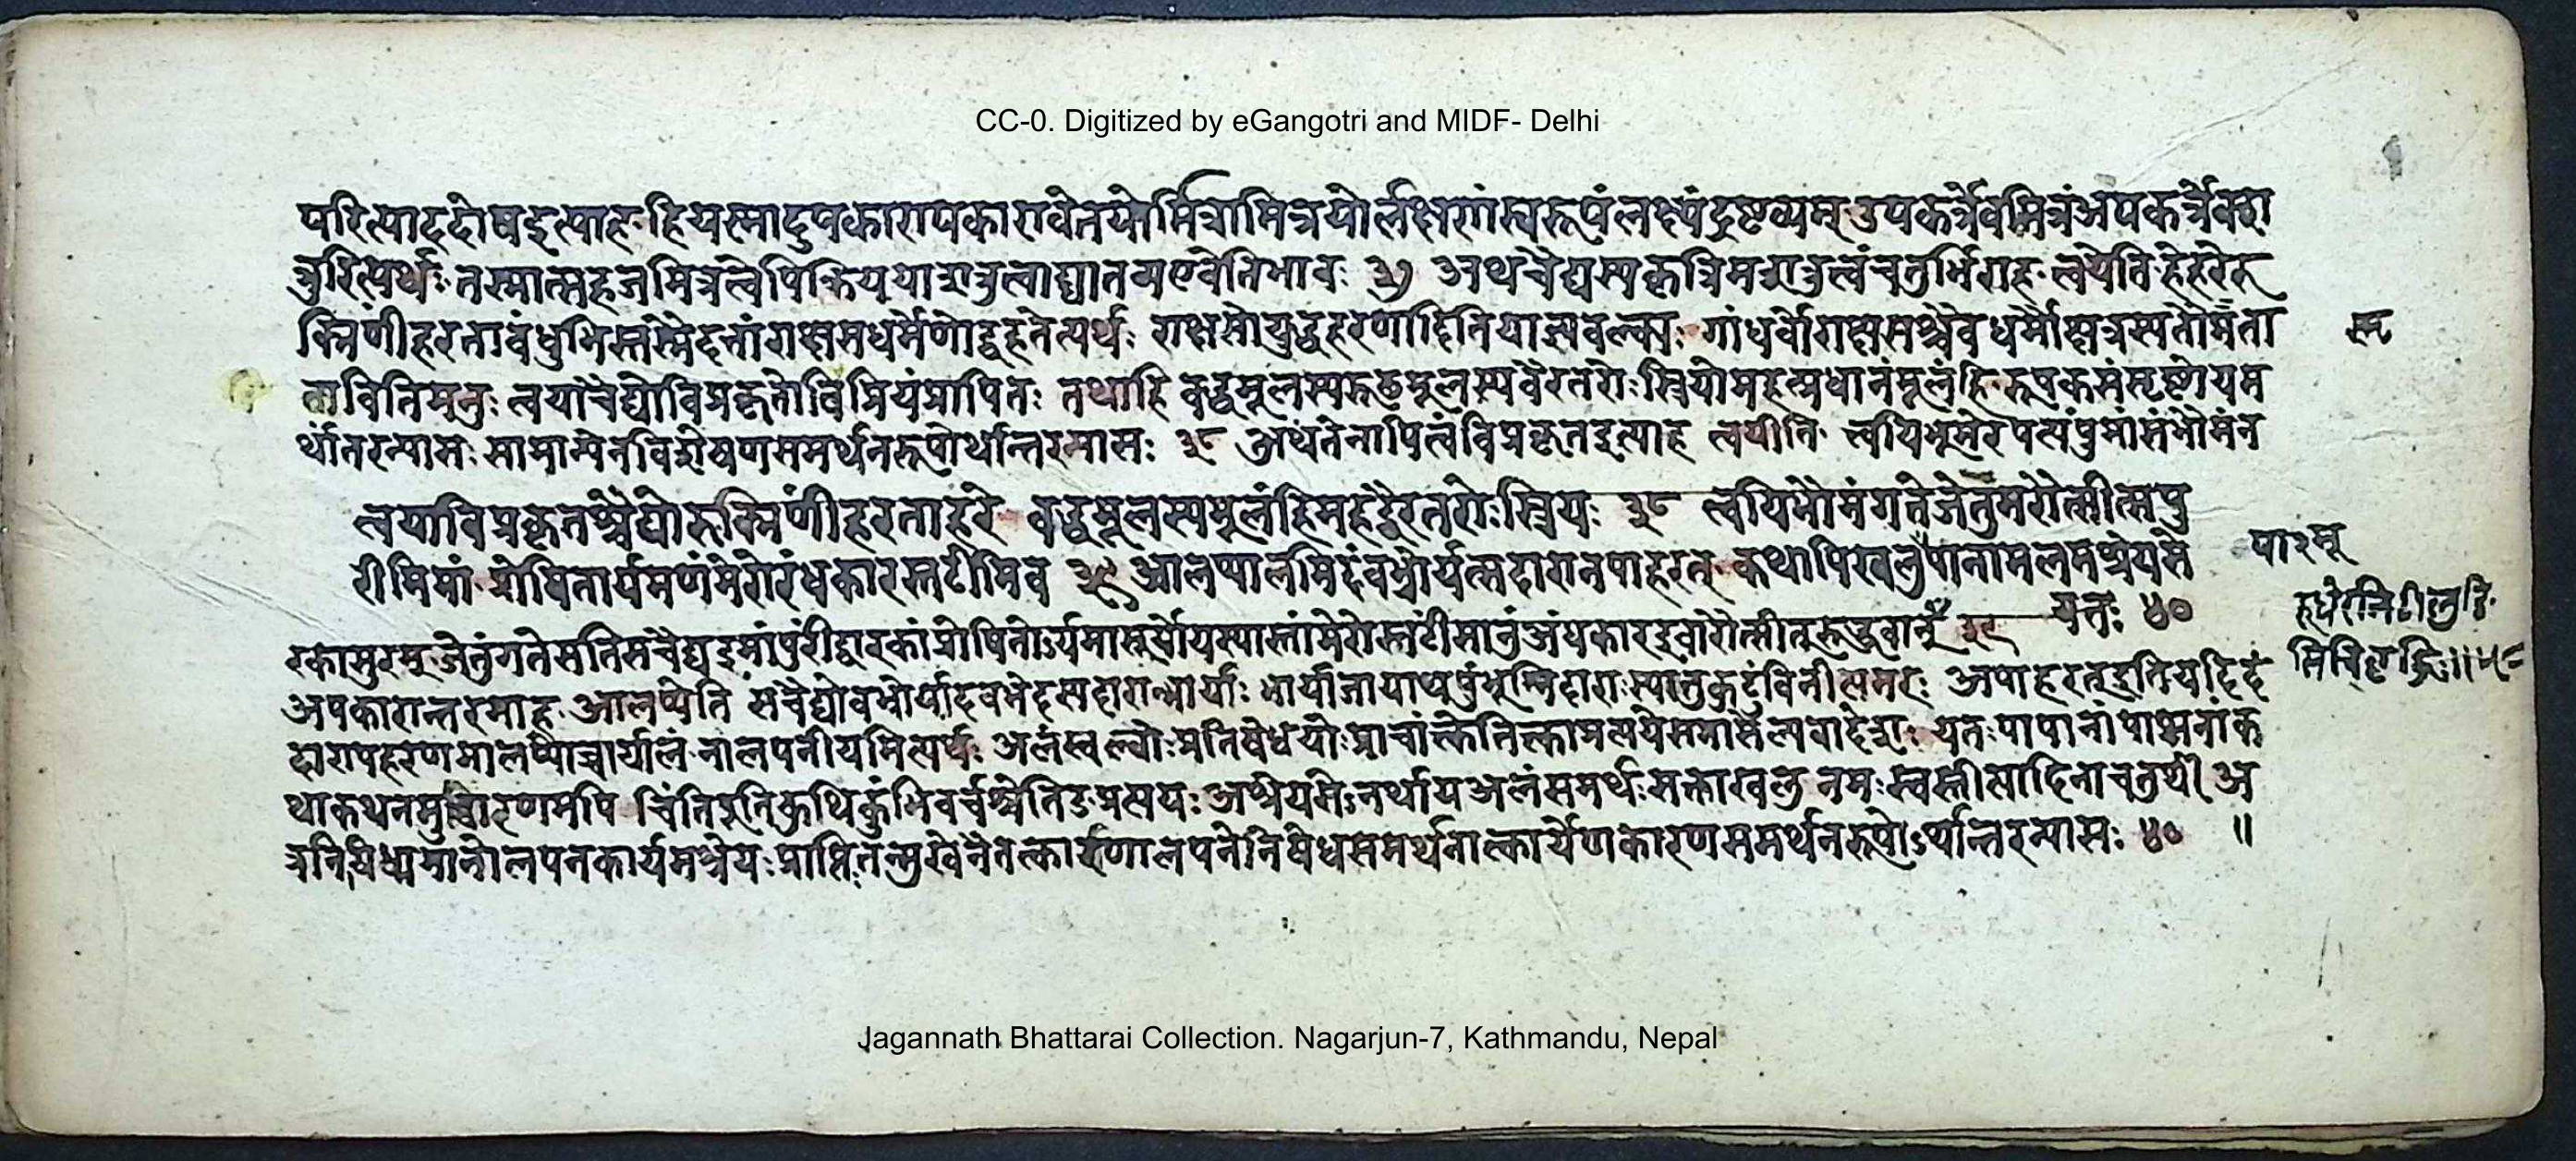 CC-0. Digitized by eGangotri and MIDF- Delhi
परित्याहदोषइत्याह हियस्मादुपकारापकारावेतयोर्मित्रामित्रयोर्लक्षणंस्वरूपंलक्ष्यंद्रष्टव्यम् उपकर्त्रैवमित्रंअपकर्त्रैवश
त्रुरित्यर्थः तस्मात्सहजमित्रत्वेपिक्रिययाशत्रुत्वाद्यातव्यएवेतिभावः ३७ अथचैद्यस्यकृत्रिमशत्रुत्वंचतुर्भिराह त्वयेति हेहरेरु
क्मिणींहरतावंधुभिस्तस्मैदत्तांराक्षसधर्मेणोद्वहतेत्यर्थः राक्षसोयुद्धहरणादितियाज्ञवल्क्यः गांधर्वोराक्षसश्चैवधर्मौक्षत्रस्यतौस्मृता
वितिमनुः त्वयाचैद्योविप्रकृतोविप्रियंप्रापितः तथाहि वद्धमूलस्यरूढमूलस्यवैरतरोः स्त्रियोमहत्प्रधानंमूलंहि रूपकसंसृष्टोयम
र्थांतरन्यासः सामान्येनविशेषणसमर्थनरूपोर्थान्तरन्यासः ३८ अथतेनापित्वंविप्रकृतइत्याह त्वयीति त्वयिभूमेरपत्यंपुमांसंभौमंन
त्वयाविप्रकृतश्चैद्योरुक्मिणींहरताहरे वद्धमूलस्यमूलंहिमहद्वैरतरोः स्त्रियः ३८ त्वयिभौमंगतेजेतुमरौत्सीत्सपु
रीमिमां प्रोषितार्यमणंमेरोरंधकारस्तटीमिव ३९ आलप्यालमिदंवभ्रोर्यत्सदारानपाहरत् कथापिखलुपापानामलमश्रेयसे
यतः ४०
रकासुरम् जेतुंगतेसतिसचैद्यइमांपुरींद्वारकांप्रोषितोऽर्यमासूर्योयस्यास्तांमेरोस्तटींसानुंअंधकारइवारौत्सीत्रुद्धवान् ३९
अपकारान्तरमाह आलप्येति सचैद्योवभ्रोर्यादवभेदस्यदारान्भार्याः भार्याजायाथपुंभूम्निदाराःस्यात्तुकुटुंविनीत्यमरः अपाहरत्इतियदिदं
दारापहरणमालप्योच्चार्यालं नालपनीयमित्यर्थः अलंखल्वोःप्रतिषेधयोःप्राचांक्त्वेतिक्त्वाप्रत्ययेसमासेल्यवादेशः यतःपापानांपाप्मनांक
थाकथनमुच्चारणमपि चिंतिपूजिकथिकुंभिचर्चश्चेतिङप्रत्ययः अश्रेयसेऽनर्थायअलंसमर्थःसक्ताखलु नमःस्वस्तीत्यादिनाचतुर्थी अ
त्रनिषिध्यमानालपनकार्यमश्रेयःप्राप्तिःतन्मुखेनैतत्कारणालपननिषेधसमर्थनात्कार्येणकारणसमर्थनरूपोऽर्थान्तरन्यासः ४० ॥
Jagannath Bhattarai Collection. Nagarjun-7, Kathmandu, Nepal